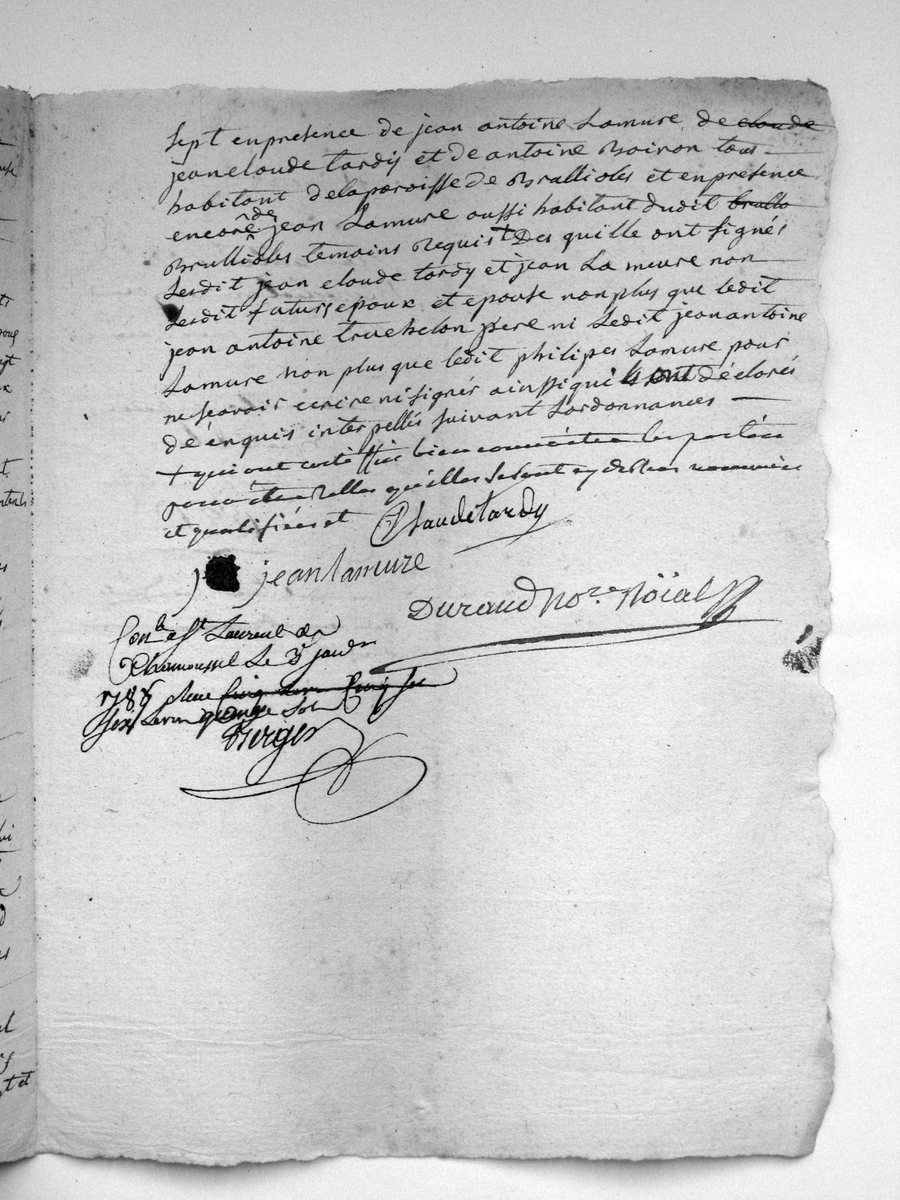 Sept en présence de jean antoine Lamure, de claude
jean claude tardy et de antoine Boiron tous
habitant de la paroisse de Brullioles et en présence
encore de jean Lamure aussi habitant dudit brullo
Brullioles temoins Requis + Des quille ont signés
Ledit jean claude tardy et jean La meure non
Lesdit futurs epoux et epouse non plus que ledit
jean antoine truchelon père ni Ledit jean antoine
Lamure non plus que ledit philipes Lamure pour
ne scavoir ecrire ni signér ainssi qui ls ont déclarés
de énquis interpellés suivant Lordonnances
+ qui ont certiffié bien connoitre les parties
pour étre telles quilles se sont cy dessus nommées
et qualifiées et Claude tardy
j jean lamure
Durand No.re Roïal
Con.le a St Laurent de
Chamousset Le 3 janv
1786
quinze sols
Berger